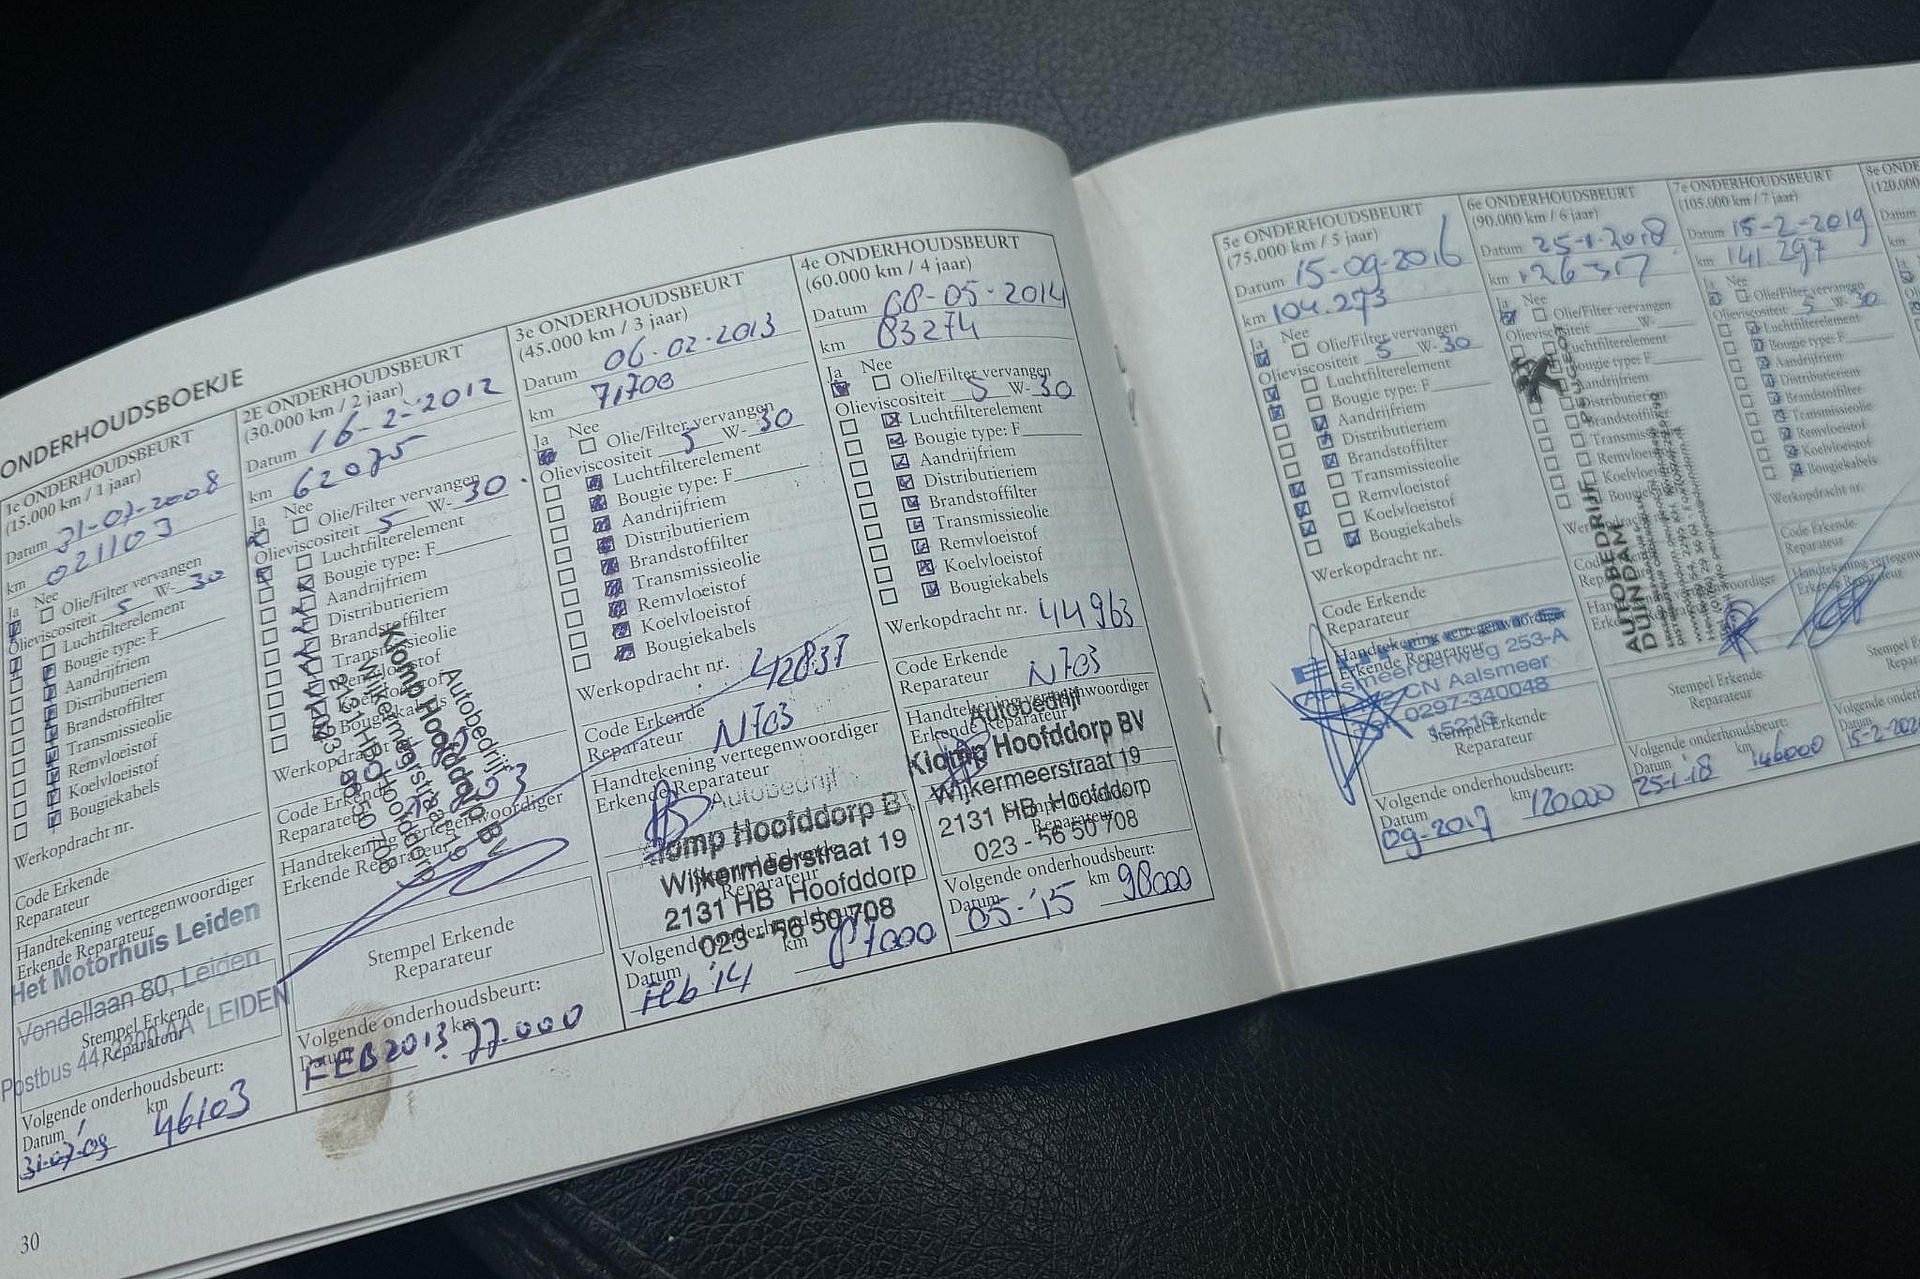 ONDERHOUDSBOEKJE
1e ONDERHOUDSBEURT
(15.000 km / 1 jaar)
Datum 31-07-2008
km 021103
Ja Nee
Olie/Filter vervangen
Olieviscositeit 5 W- 30
Luchtfilterelement
Bougie type: F
Aandrijfriem
Distributieriem
Brandstoffilter
Transmissieolie
Remvloeistof
Koelvloeistof
Bougiekabels
Werkopdracht nr.
Code Erkende
Reparateur
Handtekening vertegenwoordiger
Erkende Reparateur
Het Motorhuis Leiden
Vondellaan 80, Leiden
Stempel Erkende
Reparateur
Postbus 44, 2300 AA LEIDEN
Volgende onderhoudsbeurt:
Datum km
31-07-09 46103
2E ONDERHOUDSBEURT
(30.000 km / 2 jaar)
Datum 16-2-2012
km 62075
Ja Nee
Olie/Filter vervangen
Olieviscositeit 5 W- 30
Luchtfilterelement
Bougie type: F
Aandrijfriem
Distributieriem
Brandstoffilter
Transmissieolie
Bougiekabels
Werkopdracht
Code Erkende
Reparateur
Handtekening vertegenwoordiger
Erkende Reparateur
Autobedrijf
Klomp Hoofddorp BV
Wijkermeerstraat 19
2131 HB Hoofddorp
023 - 56 50 708
Stempel Erkende
Reparateur
Volgende onderhoudsbeurt:
Datum km
FEB 2013 77.000
3e ONDERHOUDSBEURT
(45.000 km / 3 jaar)
Datum 06-02-2013
km 71,700
Ja Nee
Olie/Filter vervangen
Olieviscositeit 5 W- 30
Luchtfilterelement
Bougie type: F
Aandrijfriem
Distributieriem
Brandstoffilter
Transmissieolie
Remvloeistof
Koelvloeistof
Bougiekabels
Werkopdracht nr. 42837
Code Erkende
Reparateur N703
Handtekening vertegenwoordiger
Erkende Reparateur
Autobedrijf
Klomp Hoofddorp BV
Wijkermeerstraat 19
Reparateur
2131 HB Hoofddorp
023 - 56 50 708
Volgende onderhoudsbeurt:
Datum km
Feb '14 87000
4e ONDERHOUDSBEURT
(60.000 km / 4 jaar)
Datum 08-05-2014
km 83274
Ja Nee
Olie/Filter vervangen
Olieviscositeit 5 W- 30
Luchtfilterelement
Bougie type: F
Aandrijfriem
Distributieriem
Brandstoffilter
Transmissieolie
Remvloeistof
Koelvloeistof
Bougiekabels
Werkopdracht nr. 44963
Code Erkende
Reparateur N703
Handtekening vertegenwoordiger
Erkende Reparateur
Autobedrijf
Klomp Hoofddorp BV
Wijkermeerstraat 19
2131 HB Hoofddorp
Reparateur
023 - 56 50 708
Volgende onderhoudsbeurt:
Datum km
05-'15 98000
30
5e ONDERHOUDSBEURT
(75.000 km / 5 jaar)
Datum 15-09-2016
km 104.273
Ja Nee
Olie/Filter vervangen
Olieviscositeit 5 W- 30
Luchtfilterelement
Bougie type: F
Aandrijfriem
Distributieriem
Brandstoffilter
Transmissieolie
Remvloeistof
Koelvloeistof
Bougiekabels
Werkopdracht nr.
Code Erkende
Reparateur
Handtekening vertegenwoordiger
Erkende Reparateur
smeerderweg 253-A
CN Aalsmeer
0297-340048
Stempel Erkende
Reparateur
Volgende onderhoudsbeurt:
Datum km
09-2017 120000
6e ONDERHOUDSBEURT
(90.000 km / 6 jaar)
Datum 25-1-2018
km 126317
Ja Nee
Olie/Filter vervangen
Olieviscositeit W-
Luchtfilterelement
Bougie type: F
Aandrijfriem
Distributieriem
Brandstoffilter
PEUGEOT
AUTOBEDRIJF
DUINDAM
Stempel Erkende
Reparateur
Volgende onderhoudsbeurt:
Datum km
25-1-18 146000
7e ONDERHOUDSBEURT
(105.000 km / 7 jaar)
Datum 15-2-2019
km 141.297
Ja Nee
Olie/Filter vervangen
Olieviscositeit 5 W- 30
Luchtfilterelement
Bougie type: F
Aandrijfriem
Distributieriem
Brandstoffilter
Transmissieolie
Remvloeistof
Koelvloeistof
Bougiekabels
Werkopdracht nr.
Code Erkende
Reparateur
Handtekening
Erkende Reparateur
Volgende
Datum
15-2-202
8e ONDE
(120.000
Datum
km